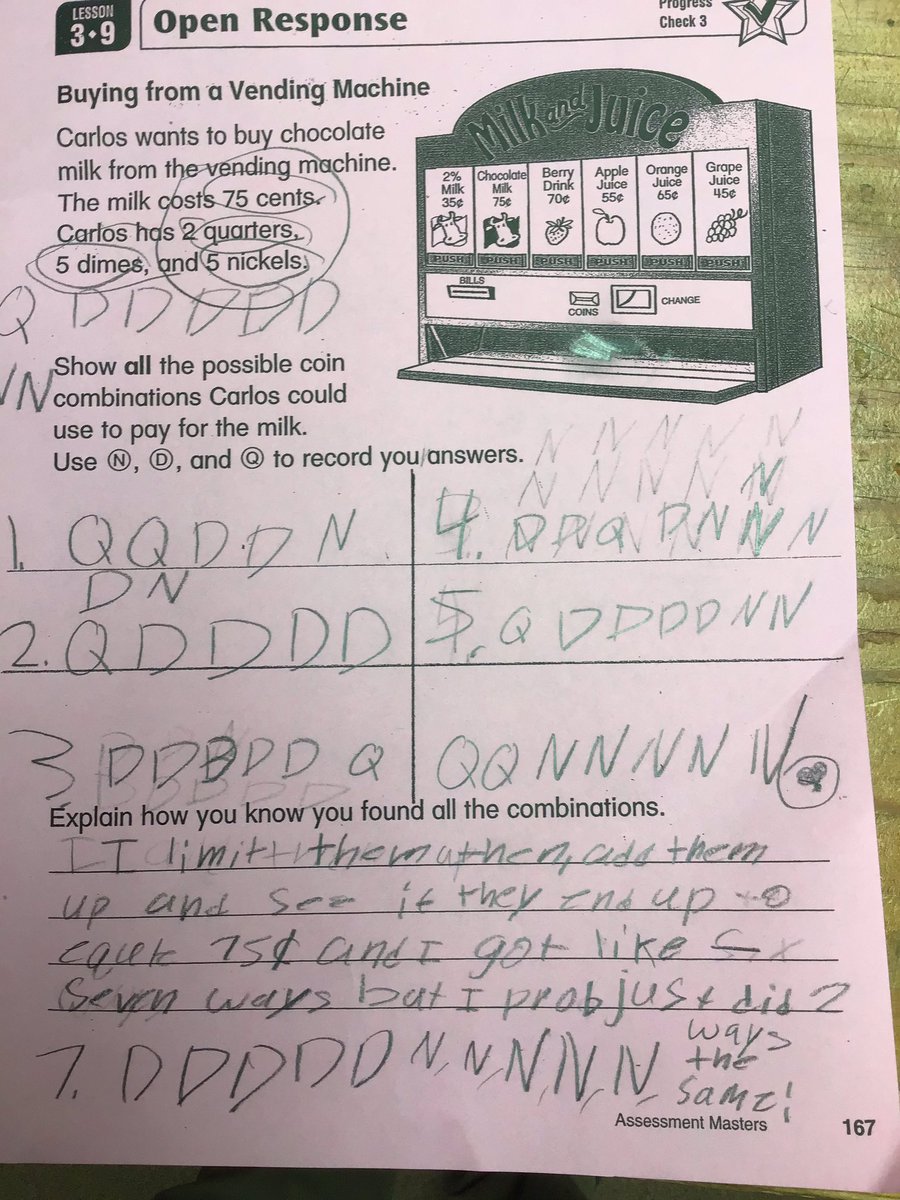 LESSON
3•9
Open Response
Progress
Check 3
Buying from a Vending Machine
Carlos wants to buy chocolate
milk from the vending machine.
The milk costs 75 cents.
Carlos has 2 quarters,
5 dimes, and 5 nickels.
Q D D D D D
NN
Milk and Juice
2% Milk 35¢
Chocolate Milk 75¢
Berry Drink 70¢
Apple Juice 55¢
Orange Juice 65¢
Grape Juice 45¢
PUSH PUSH PUSH PUSH PUSH PUSH
BILLS
COINS
CHANGE
Show all the possible coin
combinations Carlos could
use to pay for the milk.
Use Ⓝ, Ⓓ, and Ⓠ to record your answers.
N N N N N
N N N N N
1. Q Q D D N
4. D D Q D N N N N
D N
2. Q D D D D
5. Q D D D D N N
3 D D D D D Q
Q Q N N N N N
Explain how you know you found all the combinations.
I limit them then, add them
up and see if they end up to
75¢ and I got like six
Seven ways but I prob just did 2
ways
the
same!
7. D D D D D N, N, N, N, N
Assessment Masters
167